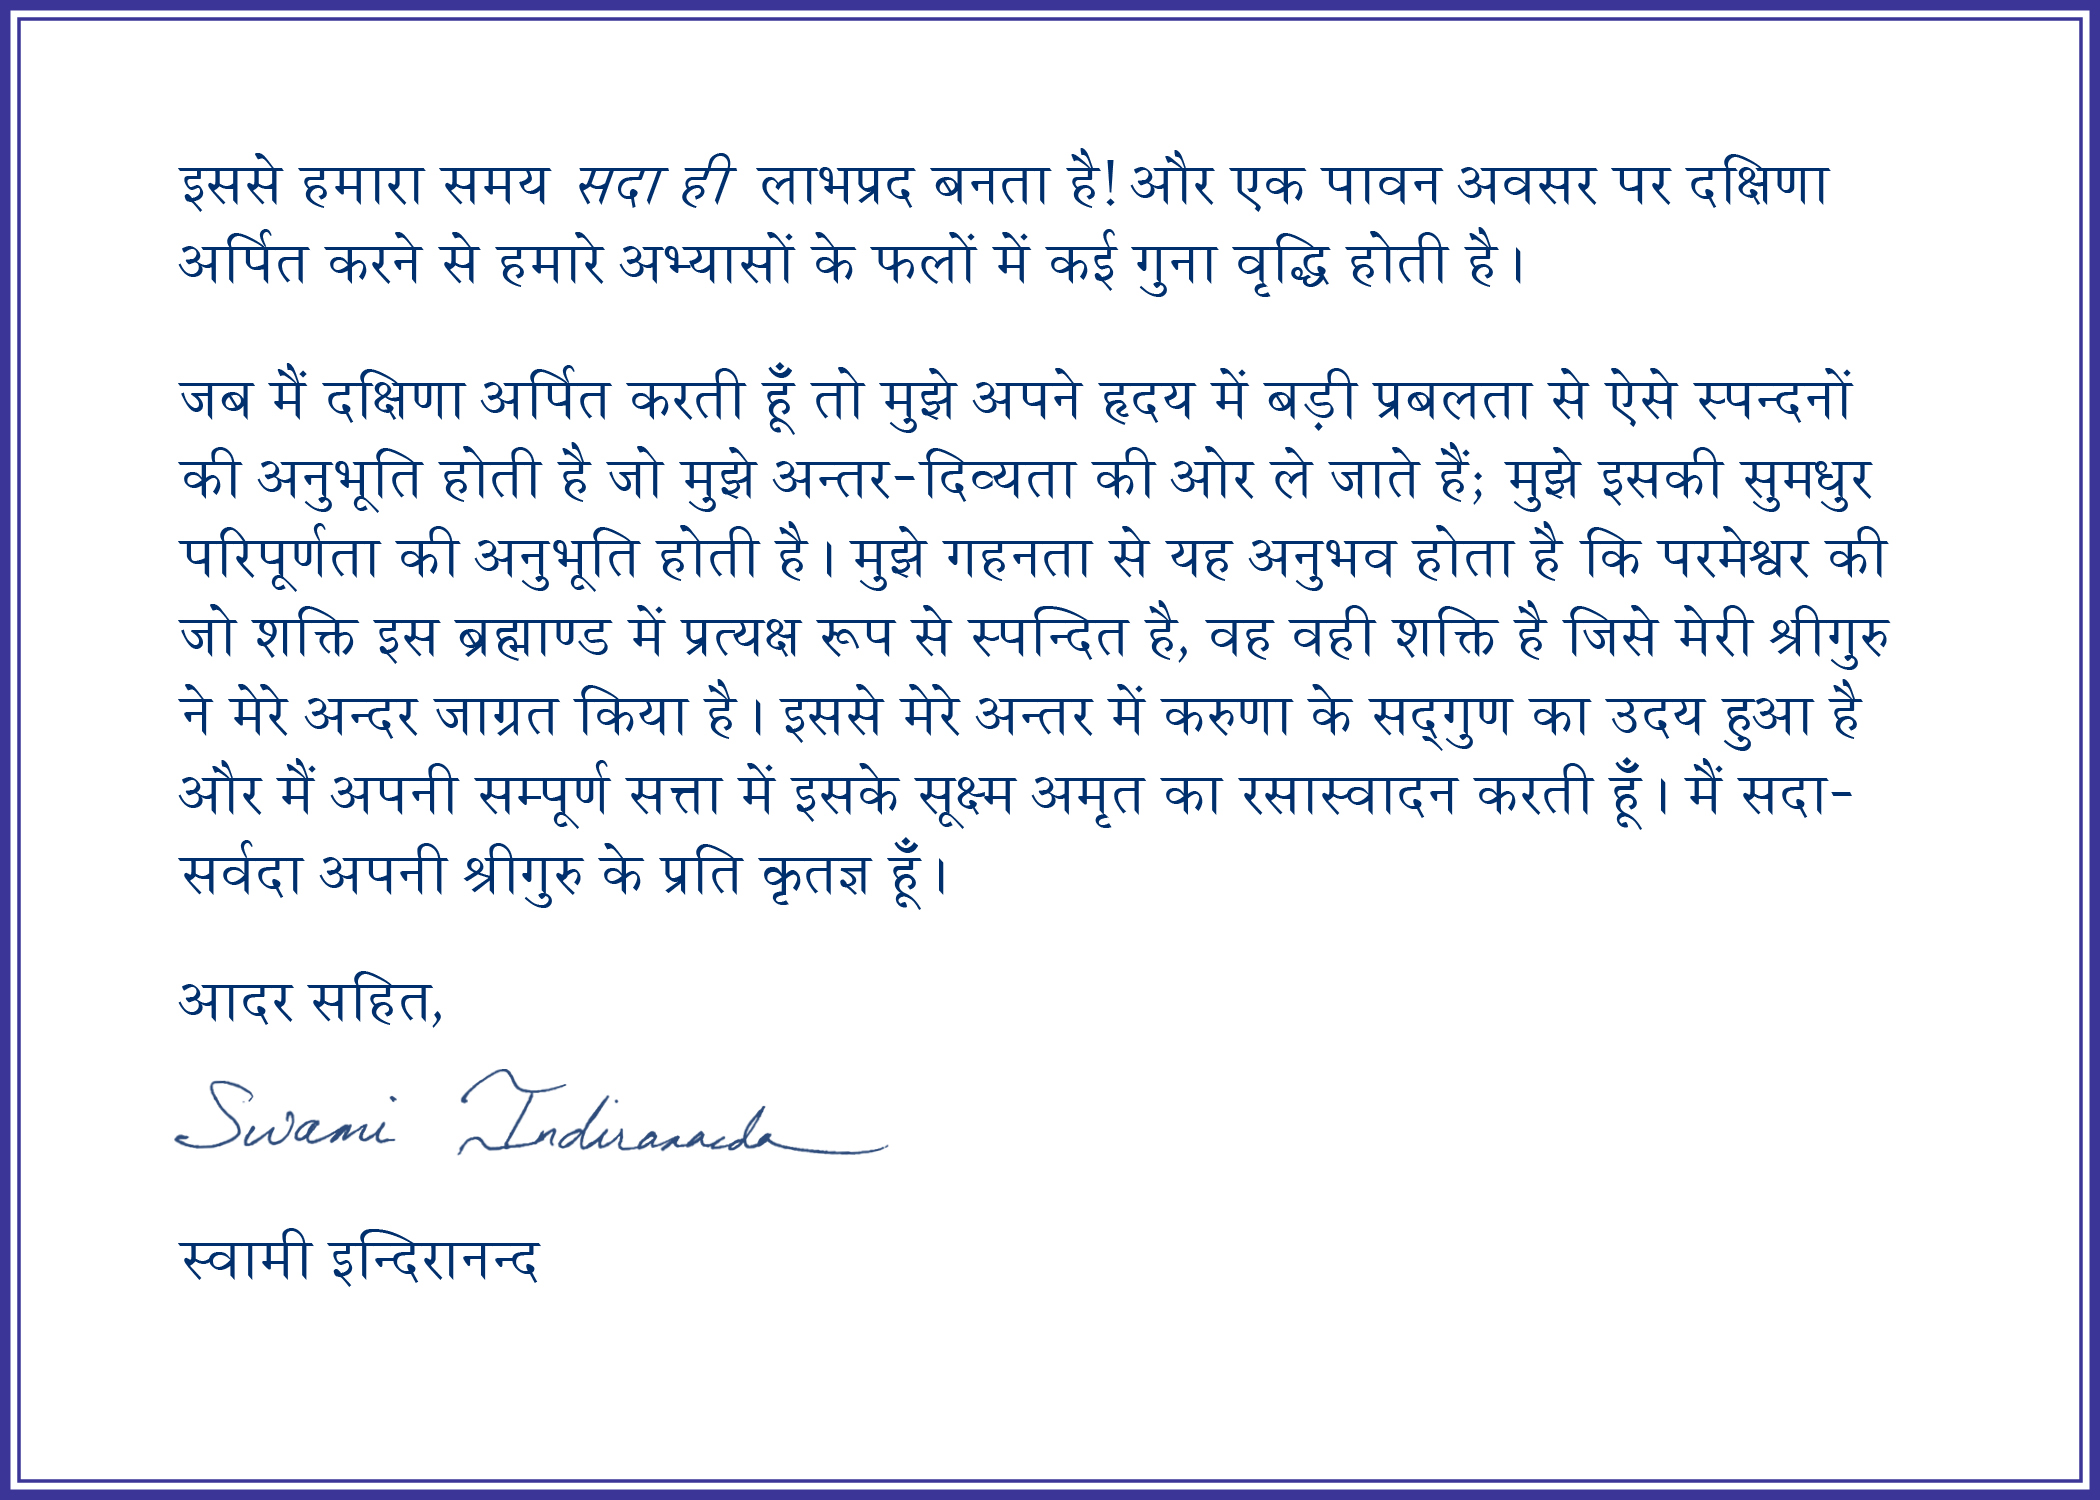 इससे हमारा समय सदा ही लाभप्रद बनता है! और एक पावन अवसर पर दक्षिणा
अर्पित करने से हमारे अभ्यासों के फलों में कई गुना वृद्धि होती है।
जब मैं दक्षिणा अर्पित करती हूँ तो मुझे अपने हृदय में बड़ी प्रबलता से ऐसे स्पन्दनों
की अनुभूति होती है जो मुझे अन्तर-दिव्यता की ओर ले जाते हैं; मुझे इसकी सुमधुर
परिपूर्णता की अनुभूति होती है। मुझे गहनता से यह अनुभव होता है कि परमेश्वर की
जो शक्ति इस ब्रह्माण्ड में प्रत्यक्ष रूप से स्पन्दित है, वह वही शक्ति है जिसे मेरी श्रीगुरु
ने मेरे अन्दर जाग्रत किया है। इससे मेरे अन्तर में करुणा के सद्‌गुण का उदय हुआ है
और मैं अपनी सम्पूर्ण सत्ता में इसके सूक्ष्म अमृत का रसास्वादन करती हूँ। मैं सदा-
सर्वदा अपनी श्रीगुरु के प्रति कृतज्ञ हूँ।
आदर सहित,
Swami Indirananda
स्वामी इन्दिरानन्द